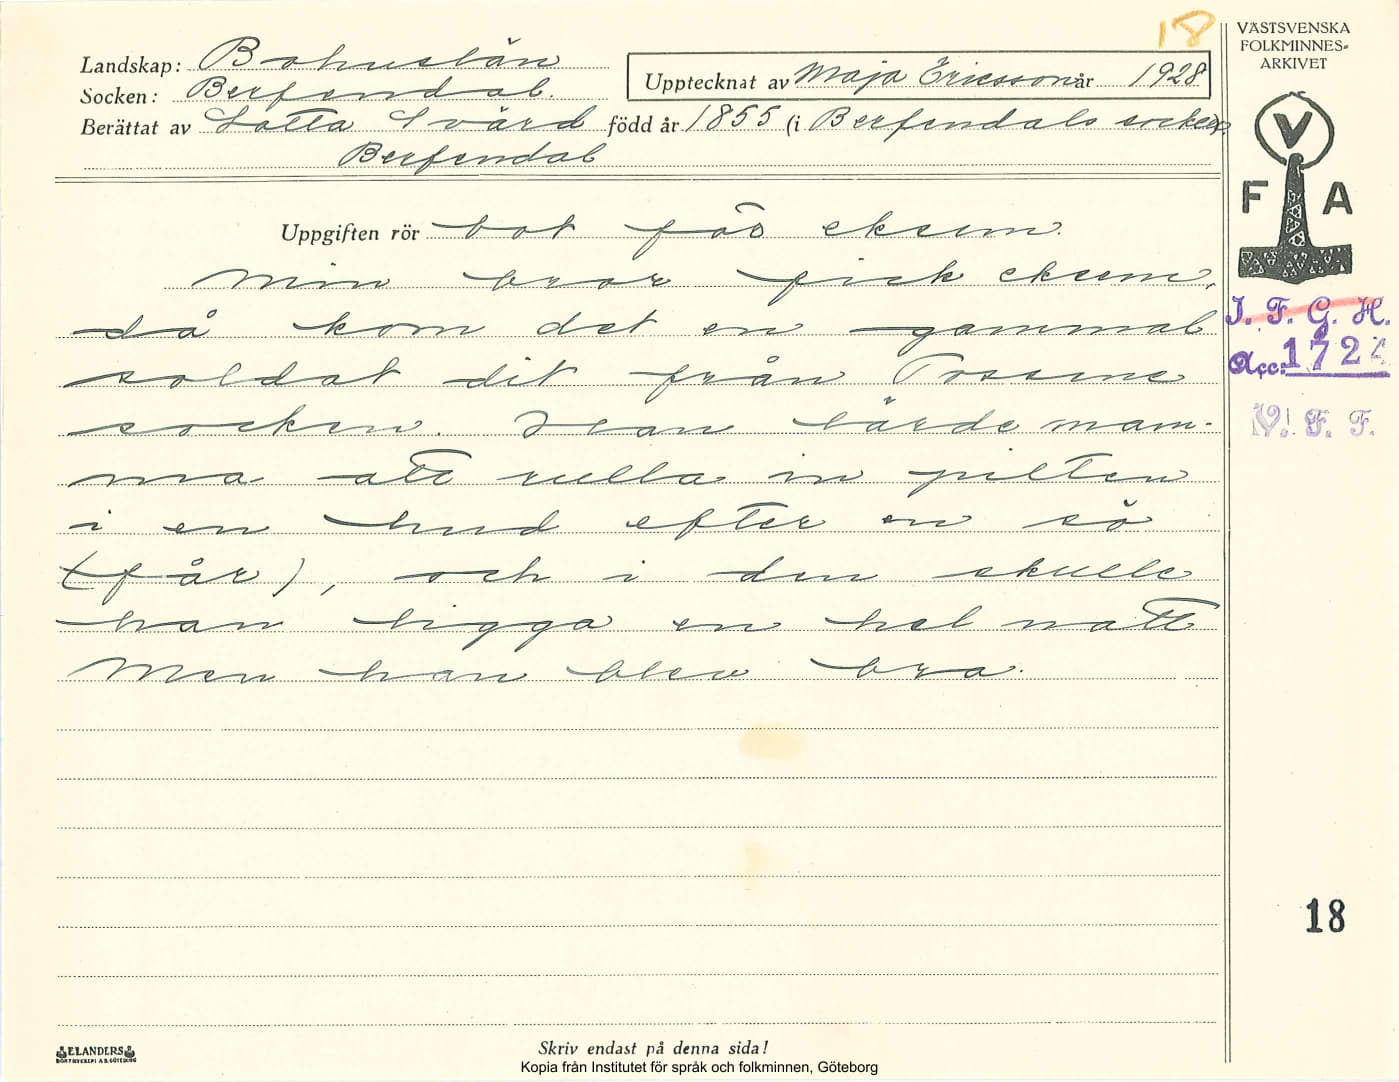 18
VÄSTSVENSKA
FOLKMINNES-
ARKIVET
Landskap: Bohuslän
Socken: Berfendal.
Upptecknat av Maja Ericsson år 1928
Berättat av Lotta Svärd född år 1855 (i Berfendals socken)
Berfendal
V
F A
Uppgiften rör bot för eksem.
Min bror fick eksem,
då kom det en gammal
soldat dit från Tossene
socken. Han lärde mam-
ma att rulla in pilten
i en hud efter en sö
(får), och i den skulle
han ligga en hel natt
Men han blev bra.
I. F. G. H.
Acc. 172
V. F. F.
18
ELANDERS
BOKTRYCKERI A.B. GÖTEBORG
Skriv endast på denna sida!
Kopia från Institutet för språk och folkminnen, Göteborg